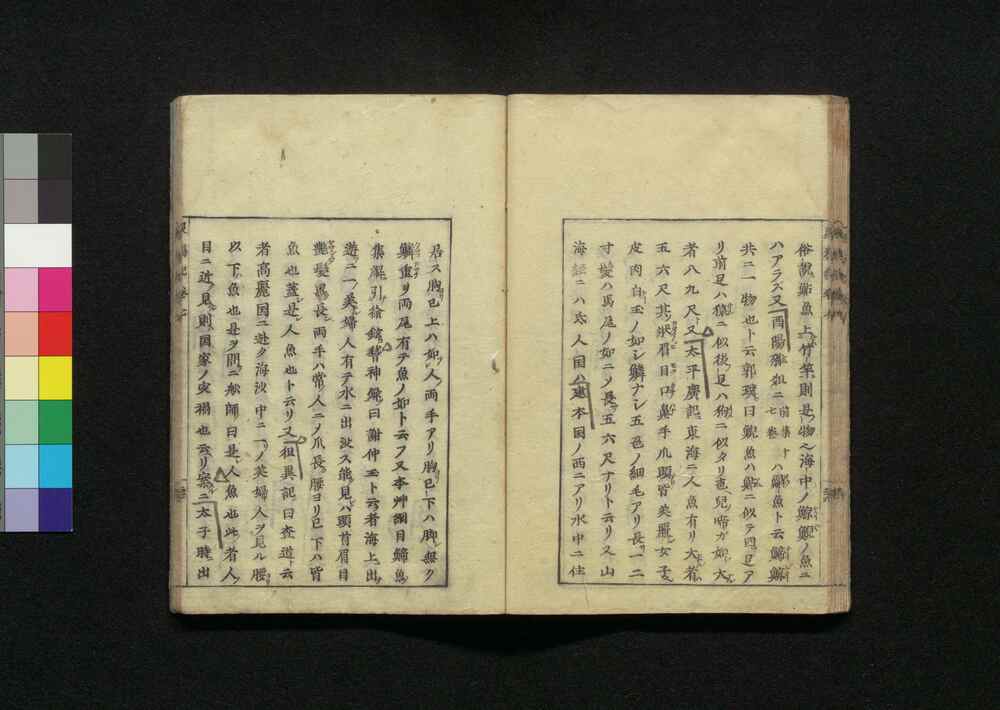 俗説鯢魚上竹樂則是物ニ〆海中ノ鯨鯢ノ魚ニ
ハアラズ又酉陽雜俎ニ 前集十七卷 ハ鯢魚ト云鯑鯨
共ニ一物也ト云郭璞曰鯢魚ハ鮎ニ似テ四足ア
リ前足ハ獼ニ似後足ハ狗ニ似タリ声兒啼カ如大
者八九尺又太平廣記東海ニ人魚有リ大者
五六尺其狀眉目口鼻手爪頭皆美麗女子
皮肉白玉ノ如シ鱗ナシ五色ノ細毛アリ長一二
寸髮ハ馬尾ノ如ニ〆長五六尺ナリト云リ又山
海經ニハ氐人国ハ建木国ノ西ニアリ水中ニ住
居ス胸已上ハ如人両手アリ胸已下ハ脚無ク
鱗重リ両尾有テ魚ノ如ト云フ又本艸綱目鯑魚
集解引徐鉉稽神錄曰謝仲玉ト云者海上出
遊ニ一美婦人有テ水ニ出沒ス能見ハ頭首眉目
艶髮累長両手ハ常ノ人ニノ爪長腰ヨリ已下ハ皆
魚也蓋是人魚也ト云リ又徂異記曰査道云
者高麗国ニ逝夕海沙中ニ一ノ美婦人ヲ見ル腰
以下魚也是ヲ問ニ船師曰是人魚也此者人
目ニ近見則国家ノ灾禍也云リ案ニ太子時出